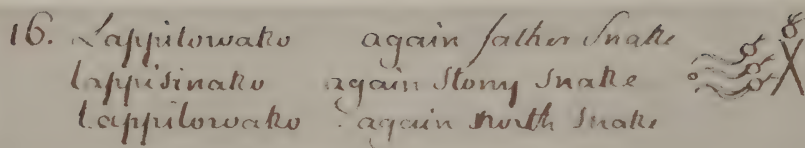 16. Lappilowako again father Snake
lappisinako again Stony Snake
Lappilowako again North Snake